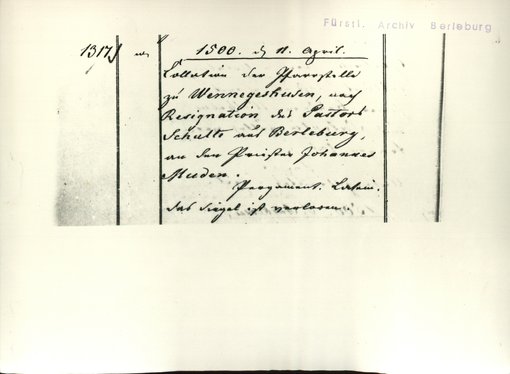 Fürstl. Archiv Berleburg
1317 1500. d. 11. April.
Collation der Pfarrstelle
zu Wennegeshusen, nach
Resignation des Pastors
Schults aus Berleburg,
an den Priester Johannes
Muden.
Pergament. Latein.
das Siegel ist verloren.